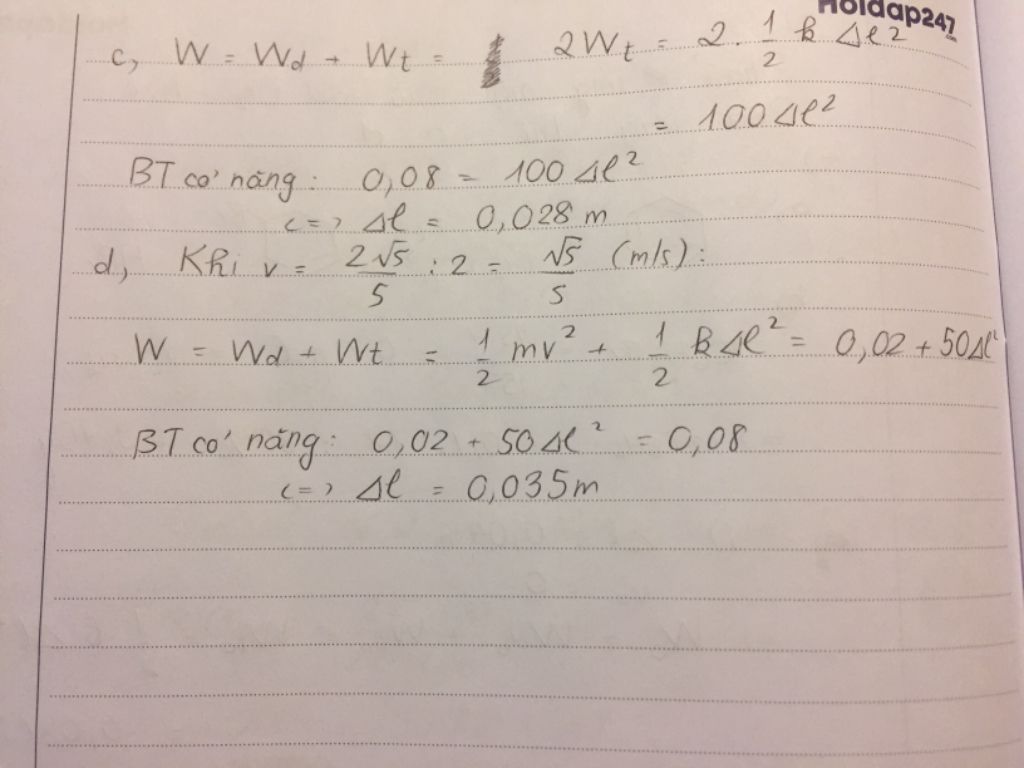 Hoidap247
c, W = Wd + Wt = 2Wt = 2. 1/2 k Δl²
= 100Δl²
BT cơ năng: 0,08 = 100 Δl²
<=> Δl = 0,028 m
d, Khi v = 2√5/5 : 2 = √5/5 (m/s):
W = Wd + Wt = 1/2 mv² + 1/2 k Δl² = 0,02 + 50Δl²
BT cơ năng: 0,02 + 50Δl² = 0,08
<=> Δl = 0,035m